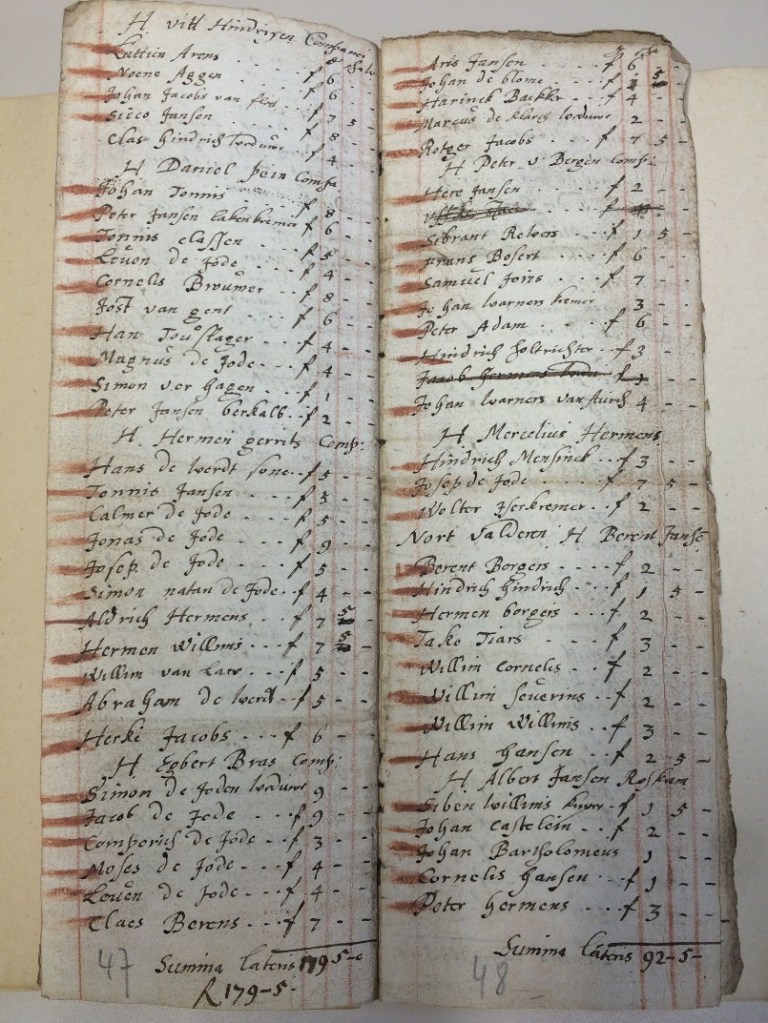 H vitt Hindrixen Compani
Luttien Arens - - f 8 - -
Noene Aggen - - f 6 - -
Johan Jacobs van - f 6 - -
Sicco Jansen - - - f 7 5 -
Clas hindrich weduwe f 8 - -
f 4 - -
H Daniel Compa
Johan Tonnis - - - f 8 - -
Peter Jansen lakenkremer f 6 - -
Tonnis Classen - - - f 5 - -
Leuon de Jode - - - f 4 - -
Cornelis Brouwer - - f 8 - -
Jost van gent - - - f 6 - -
Han Touslager - - f 4 - -
Magnus de Jode - - f 4 - -
Simon ver hagen - - f 1 - -
Peter Jansen berkalb - - f 2 - -
H. Hermen gerrits Comp:
Hans de werdt sone - - f 5 - -
Tonnis Jansen - - - f 3 - -
Calmer de Jode - - - f 5 - -
Jonas de Jode - - - f 9 - -
Josep de Jode - - - f 5 - -
Simon natan de Jode - - f 4 - -
Aldrich Hermens - - - f 7 5 -
Hermen Willims - - - f 7 5 -
Willim van Laer - - f 5 - -
Abraham de werdt - - f 5 - -
Herke Jacobs - - - f 6 -
H Egbert Bras Comp:
Simon de Joden weduwe 9 - -
Jacob de Jode - - - f 9 - -
Comperich de Jode - - f 3 - -
Moses de Jode - - - f 4 - -
Leuon de Jode - - - f 4 - -
Claes Berens - - - f 7 - -
Summa lateris 179 5 - 0
R 179 - 5 -
47
Aris Jansen - - - f 6 - -
Johan de blome - - - f 5 -
Harinck Backker - - f 4 - -
Marcus de weduwe 2 - -
Rotger Jacobs - - f 7 5 -
H Peter v Bergen Comp:
Here Jansen - - - f 2 - -
Sibrant - - f 1 5
Frans Bosert - - f 6 - -
Samuel Joins - - - f 7 - -
Johan warners kremer 3 - -
Peter Adam - - - f 6 - -
Hindrich holtrichter - - f 3 - -
Jacob hermens f 1
Johan warners van 4 - -
H Mercelius Hermens
Hindrich Mensinck - - f 3 - -
Josep de Jode - - - f 7 5 -
Wolter Iserkremer - - f 2 - -
Nort Valderen H Berent Janse
Berent Borgers - - - - f 2 - -
Hindrich hindrich - - f 1 5 -
Hermen borgers - - - f 2 - -
Take Tiars - - - f 3 - -
Willim Cornelis - - f 2 - -
Willim Severins - - f 2 - -
Willim Willims - - f 3 - -
Hans Hansen - - f 2 5 -
H Albert Jansen Roskam
Siben Willims - f 1 5 -
Johan Castelein - - f 2 - -
Johan Bartholomeus 1 - -
Cornelis Hansen - - f 1 - -
Peter hermens - - - f 3 - -
Summa lateris 92 - 5 -
48